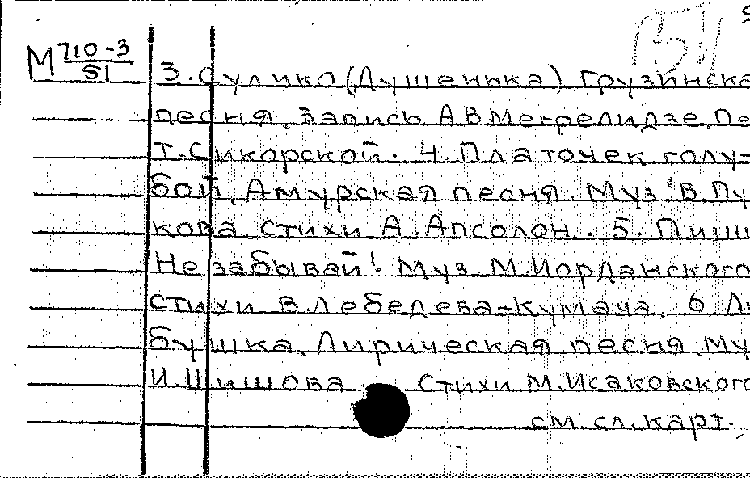 М 710-3
51
3. Сулико (Душенька) Грузинска
песня. Запись А В Мегрелидзе. Пе
Т. Сикорской. 4. Платочек голу-
бой, Амурская песня. Муз В. Пу
кова Стихи А. Апсолон. 5. Пиши
Не забывай! Муз М. Иорданского
стихи В. Лебедева-Кумача. 6 Лю
бушка. Лирическая песня Му
И. Шишова Стихи М. Исаковского
см. сл. карт.